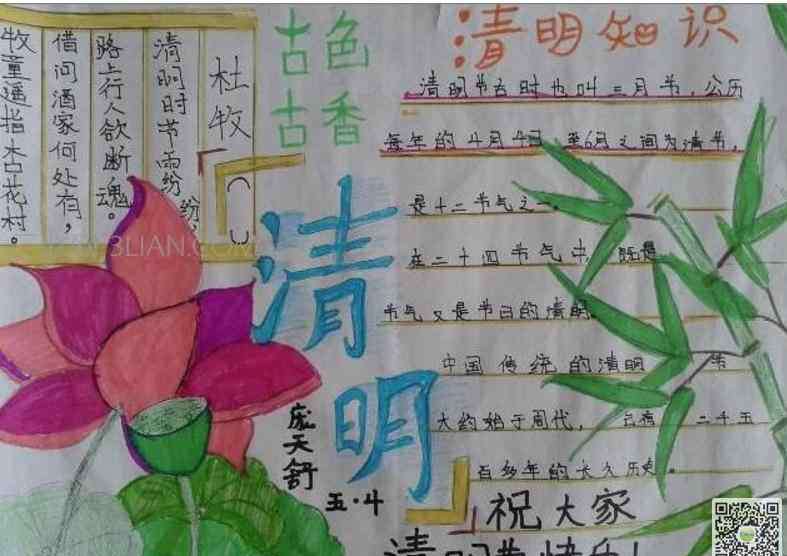 杜牧
清明时节雨纷纷,
路上行人欲断魂。
借问酒家何处有,
牧童遥指杏花村。
古色
古香
清明
庞天舒
五·4
清明知识
清明节古时也叫三月节,公历
每年的4月4日 至6日之间为清节,
是十二节气之一。
在二十四节气中,既是
节气又是节日的清明。
中国传统的清明 节
大约始于周代, 二千五
百多年的长久历史。
祝大家
清明节快乐!
3LIAN.COM